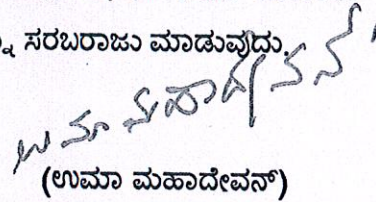 ಸರಬರಾಜು ಮಾಡುವುದು.
ಉಮಾ ಮಹಾದೇವನ್
(ಉಮಾ ಮಹಾದೇವನ್)